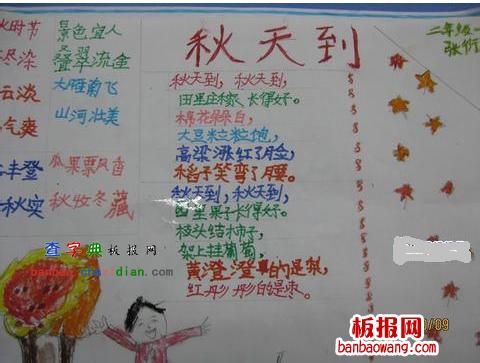 秋天到
二年级一
张
时节 景色宜人
尽染 叠翠流金
云淡 大雁南飞
气爽 山河壮美
丰登 瓜果飘香
秋实 秋收冬藏
秋天到，秋天到，
田里庄稼，长得好。
棉花朵朵白，
大豆粒粒饱，
高梁涨红了脸，
稻子笑弯了腰。
秋天到，秋天到，
园里果子长得好。
枝头结柿子，
架上挂葡萄，
黄澄澄的是梨，
红彤彤的是枣。
查字典板报网
banbao.chazidian.com
/09
板报网
banbaowang.com